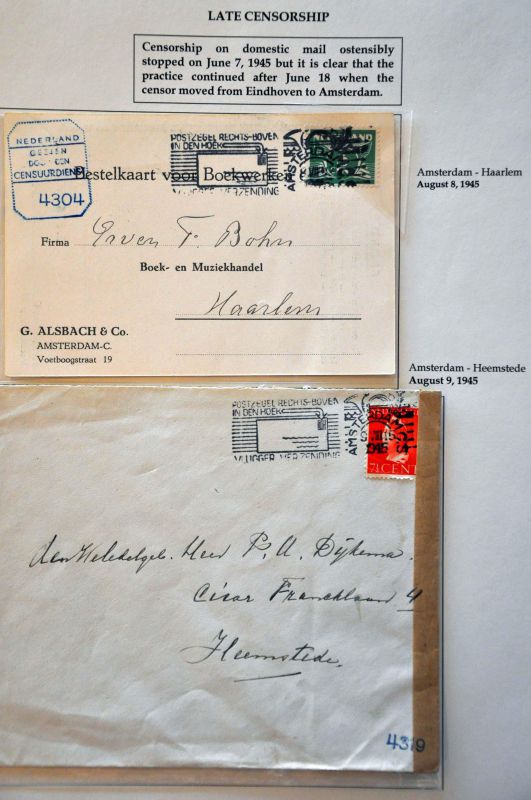 LATE CENSORSHIP
Censorship on domestic mail ostensibly
stopped on June 7, 1945 but it is clear that the
practice continued after June 18 when the
censor moved from Eindhoven to Amsterdam.
NEDERLAND
GEZIEN
DOOR DEN
CENSUURDIENST
4304
POSTZEGEL RECHTS-BOVEN
IN DEN HOEK
VLUGGER VERZENDING
AMSTERDAM
Bestelkaart voor Boekwerken
Amsterdam - Haarlem
August 8, 1945
Firma Erven F. Bohn
Boek- en Muziekhandel
Haarlem
G. ALSBACH & Co.
AMSTERDAM-C.
Voetboogstraat 19
Amsterdam - Heemstede
August 9, 1945
POSTZEGEL RECHTS-BOVEN
IN DEN HOEK
VLUGGER VERZENDING
AMSTERDAM
1945
7½ CENT
den Weledelgeb. Heer P. A. Dijkema.
César Francklaan 4
Heemstede.
4319